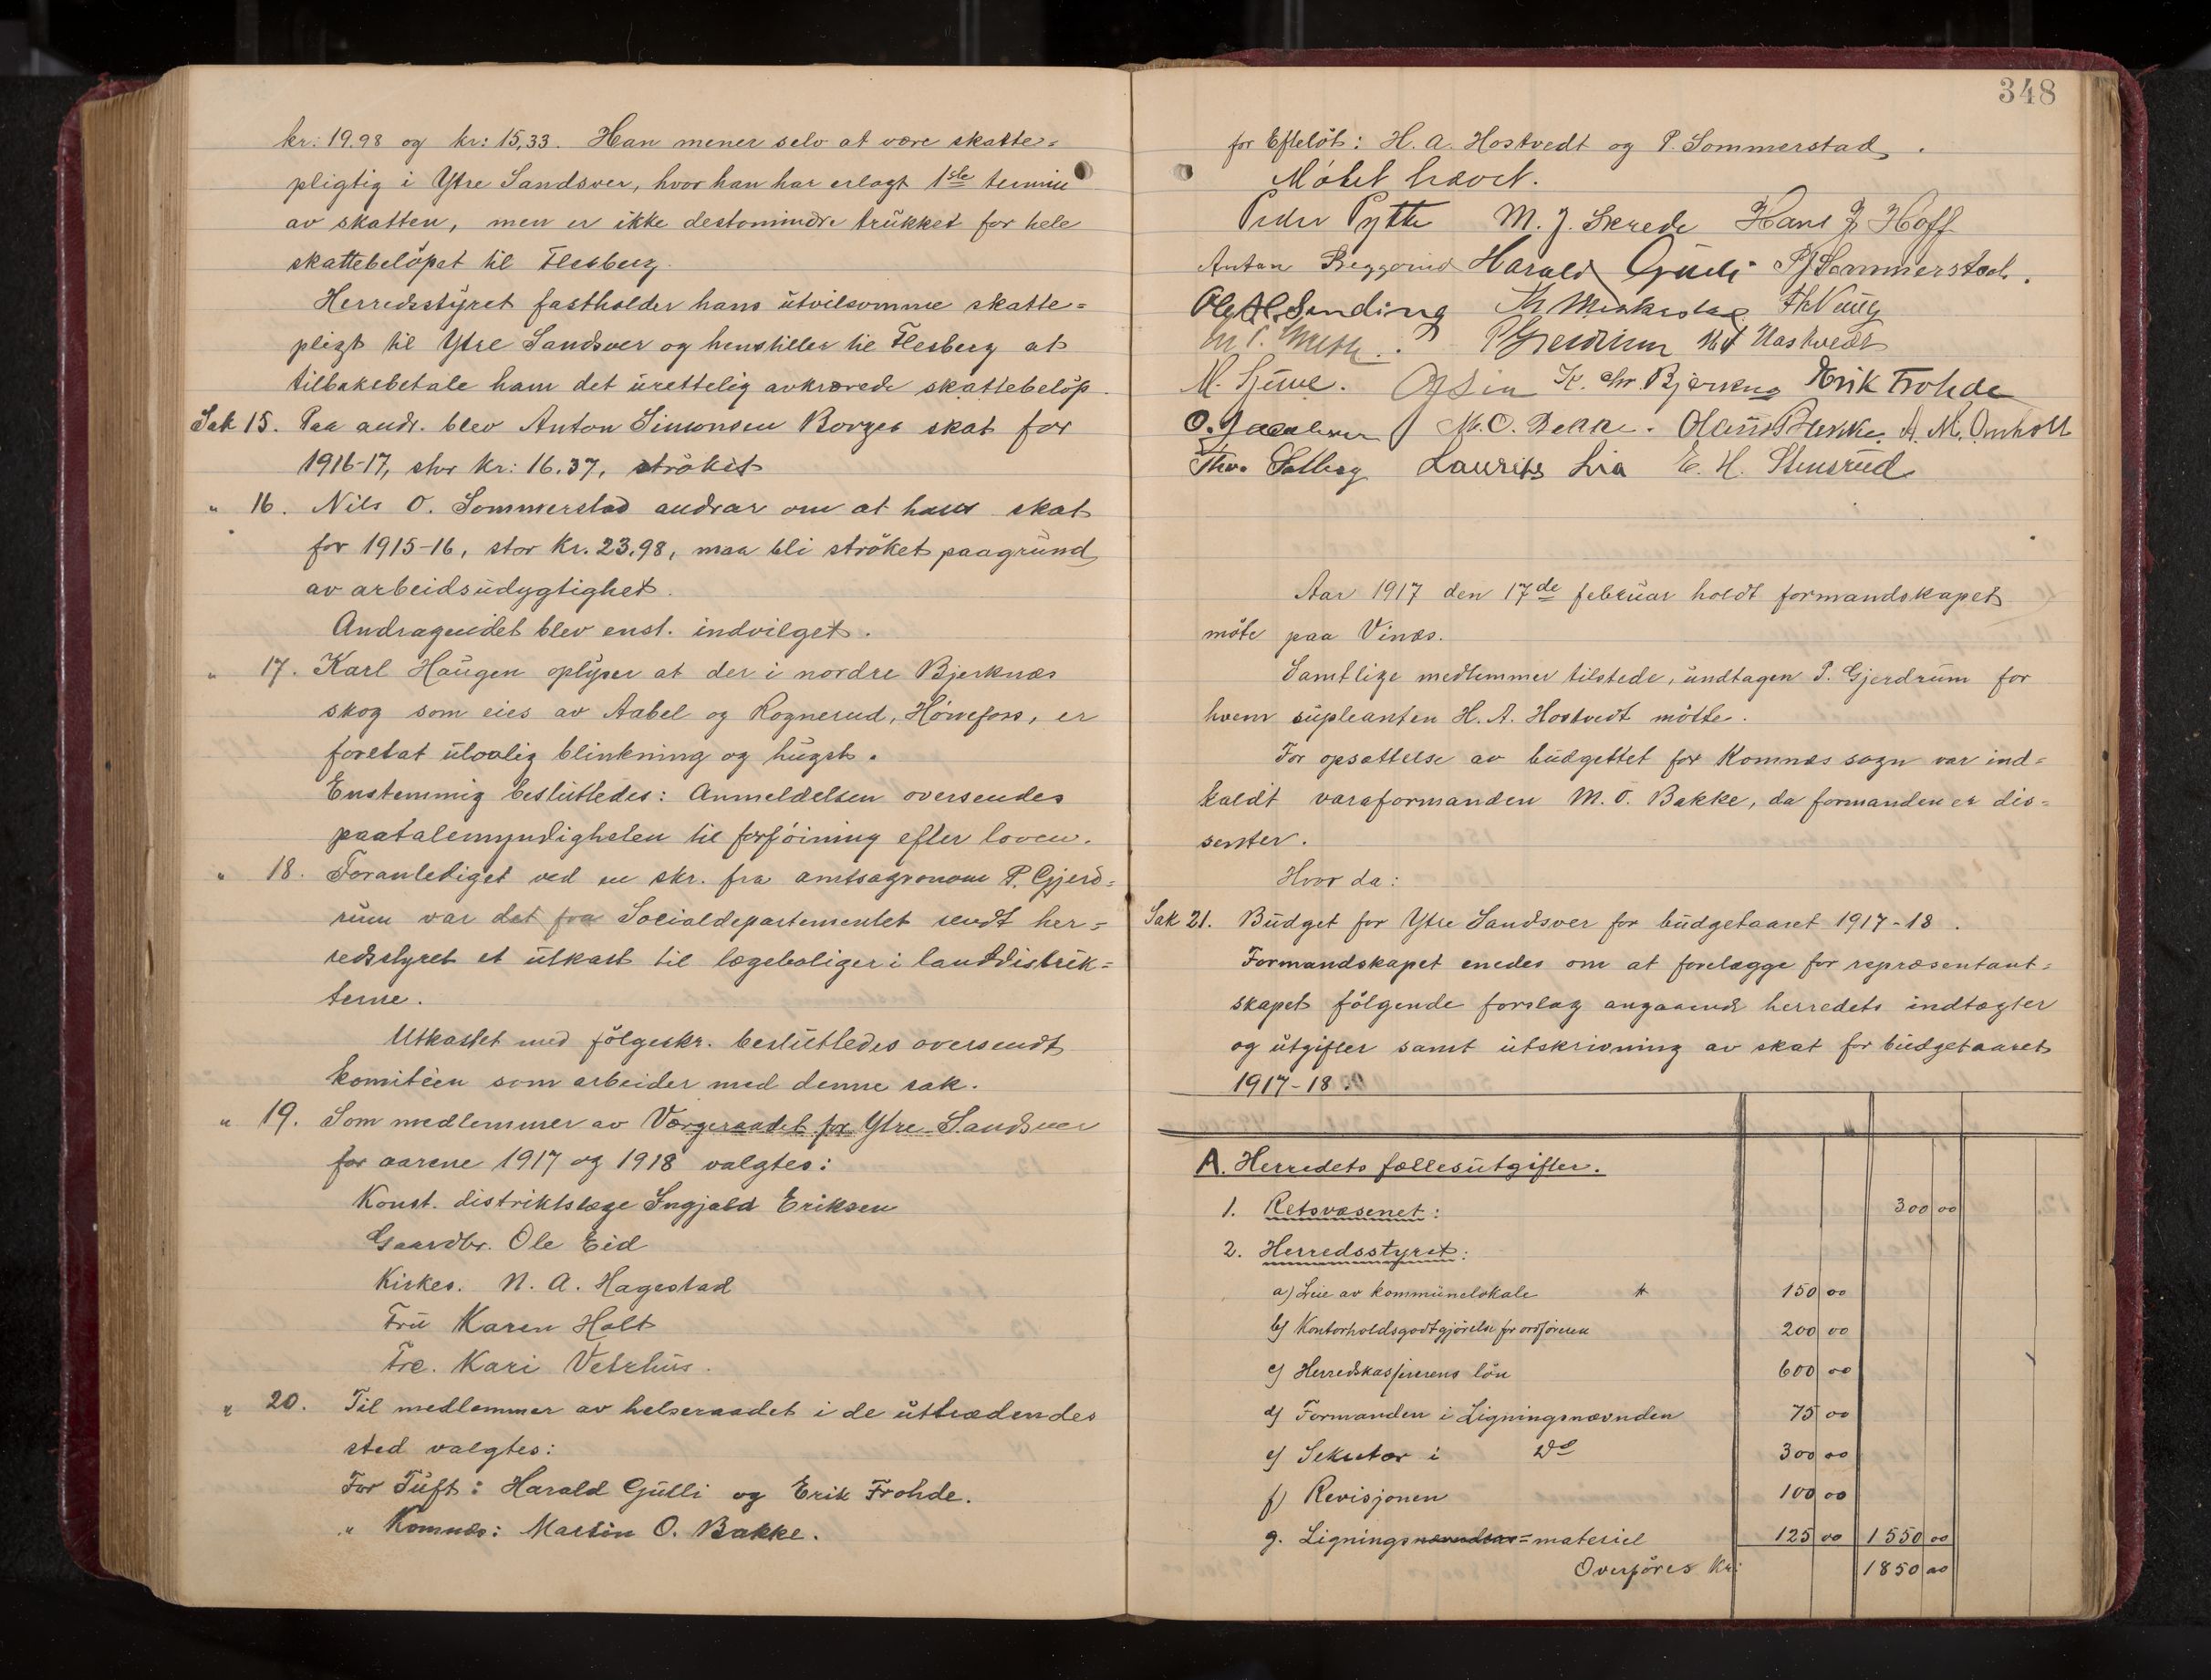 kr: 19.98 og kr: 15,33. Han mener selv at være skatte=
pligtig i Ytre Sandsver, hvor han har erlagt 1ste termin
av skatten, men er ikke destomindre trükket for hele
skattebelöpet til Flesberg.
Herredsstyret fastholder hans ütvilsomme skatte=
pligt til Ytre Sandsver og henstiller til Flesberg at
tilbakebetale ham det ürettelig avkrævede skattebelöp.
Sak 15. Paa andr. blev Anton Simonsen Borges skat for
1916-17, stor kr: 16.37, ströket
" 16. Nils O. Sommerstad andrar om at hans skat
for 1915-16, stor kr. 23,98, maa bli ströket paagründ
av arbeidsüdygtighet.
Andragendet blev enst. indvilget.
" 17. Karl Haügen oplyser at der i nordre Bjerknæs
skog som eies av Aabel og Rognerud, Hönefoss, er
foretat ülovlig blinkning og hügst.
Enstemmig beslüttedes: Anmeldelsen oversendes
paatalemyndigheten til forföining efter loven.
" 18. Foranlediget ved en skr. fra amtsagronom P. Gjerd=
rüm var det fra Socialdepartementet sendt her=
redsstyret et ütkast til lægeboliger i landdistrik=
terne.
Utkastet med fölgeskr. beslüttedes oversendt
komitéen som arbeider med denne sak.
" 19. Som medlemmer av Værgeraadet for Ytre Sandsver
for aarene 1917 og 1918 valgtes:
Konst. distriktslæge Ingjald Eriksen
Gaardbr. Ole Eid
Kirkes. N. A. Hagestad
Frü Karen Holt
Frø. Kari Vetrhüs.
" 20. Til medlemmer av helseraadet i de üttrædendes
sted valgtes:
For Tüft: Harald Gülli og Erik Frohde.
" Komnæs: Martin O. Bakke.
348
for Efteløt: H. A. Hostvedt og P. Sommerstad.
Mötet hævet.
Peder Pytte M. J. Skrede Hans J. Hoff
Anton Harald Gülli P. Sommerstad.
Ole H. Sending Th
P Gjerdrum H A Hostvedt
M. K. Chr. Bjerknæs Erik Frohde
O. Jacobsen M. O. Bakke. Olaus A. M. Omholt
Thv. Solberg Laurits Lia E. H. Stensrüd
Aar 1917 den 17de februar holdt formandskapet
möte paa Vinæs.
Samtlige medlemmer tilstede, undtagen P. Gjerdrüm for
hvem süpleanten H. A. Hostvedt mötte.
For opsættelse av büdgettet for Komnæs sogn var ind=
kaldt varaformanden M. O. Bakke, da formanden er dis=
senter.
Hvor da:
Sak 21. Büdget for Ytre Sandsver for büdgetaaret 1917-18.
Formandskapet enedes om at forelægge for repræsentant=
skapet fölgende forslag angaaende herredets indtægter
og ütgifter samt ütskrivning av skat for büdgetaaret
1917-18.
A. Herredets fællesütgifter.
1. Retsvæsenet: 300 00
2. Herredsstyret:
a) Leie av kommünelokale 150 00
b) Kontorholdsgodtgjörelse for ordföreren 200 00
c) Herredskassererens lön 600 00
d) Formanden i Ligningsnævnden 75 00
e) Sekretær i do 300 00
f) Revisjonen 100 00
g. Ligningsnævndens=materiel 125 00 1550 00
Overföres Kr: 1850 00